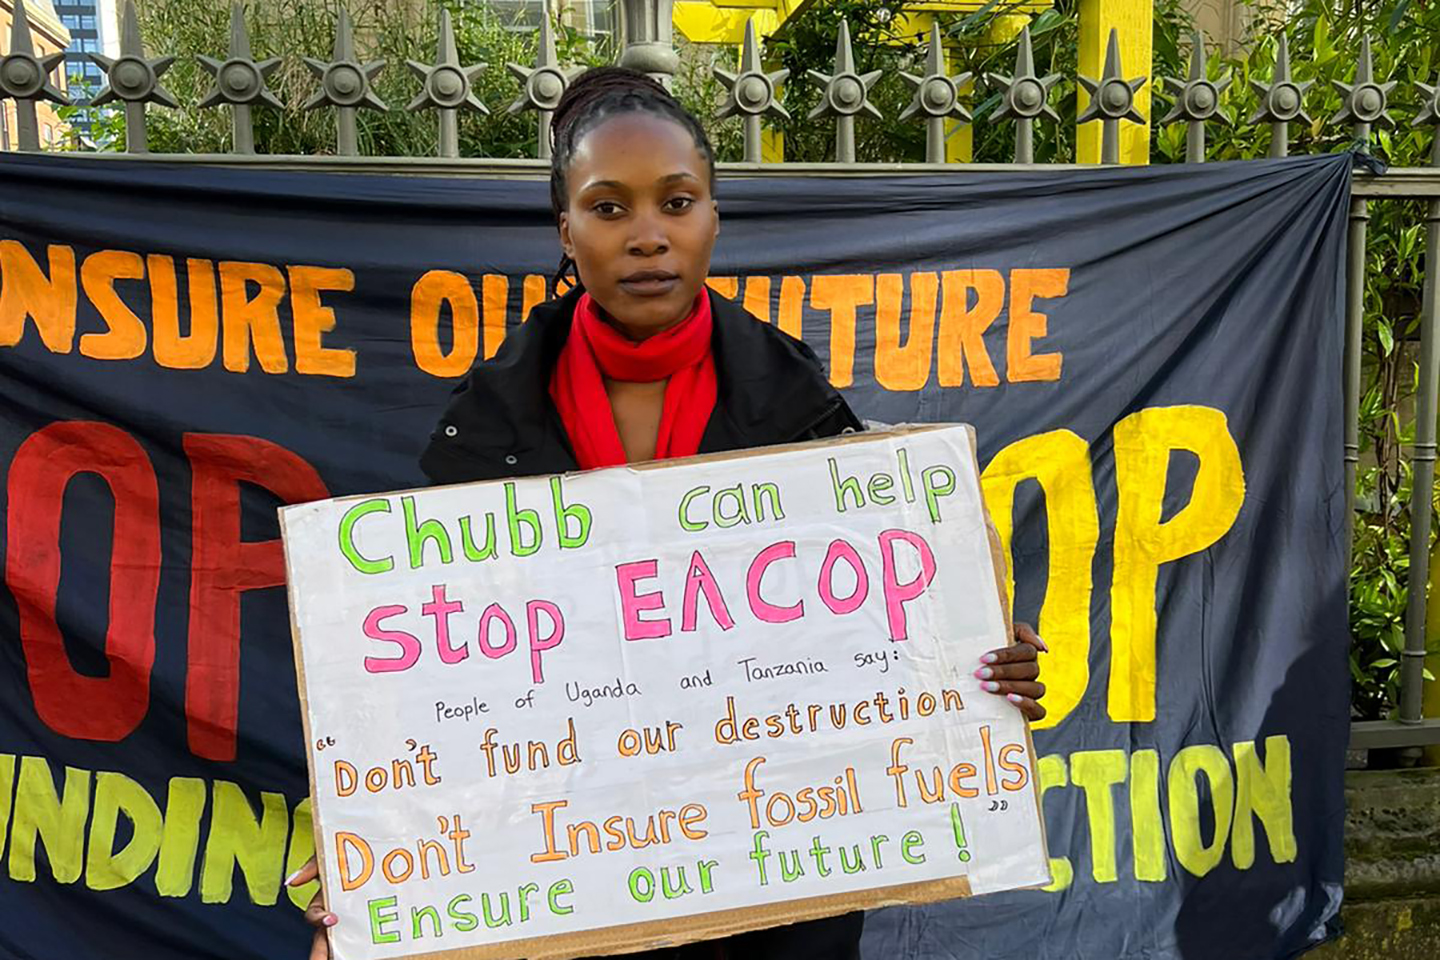 NSURE OUR FUTURE
OP OP
UNDING CTION
Chubb can help
stop EACOP
People of Uganda and Tanzania say:
"Don't fund our destruction
Don't Insure fossil fuels"
Ensure our future!